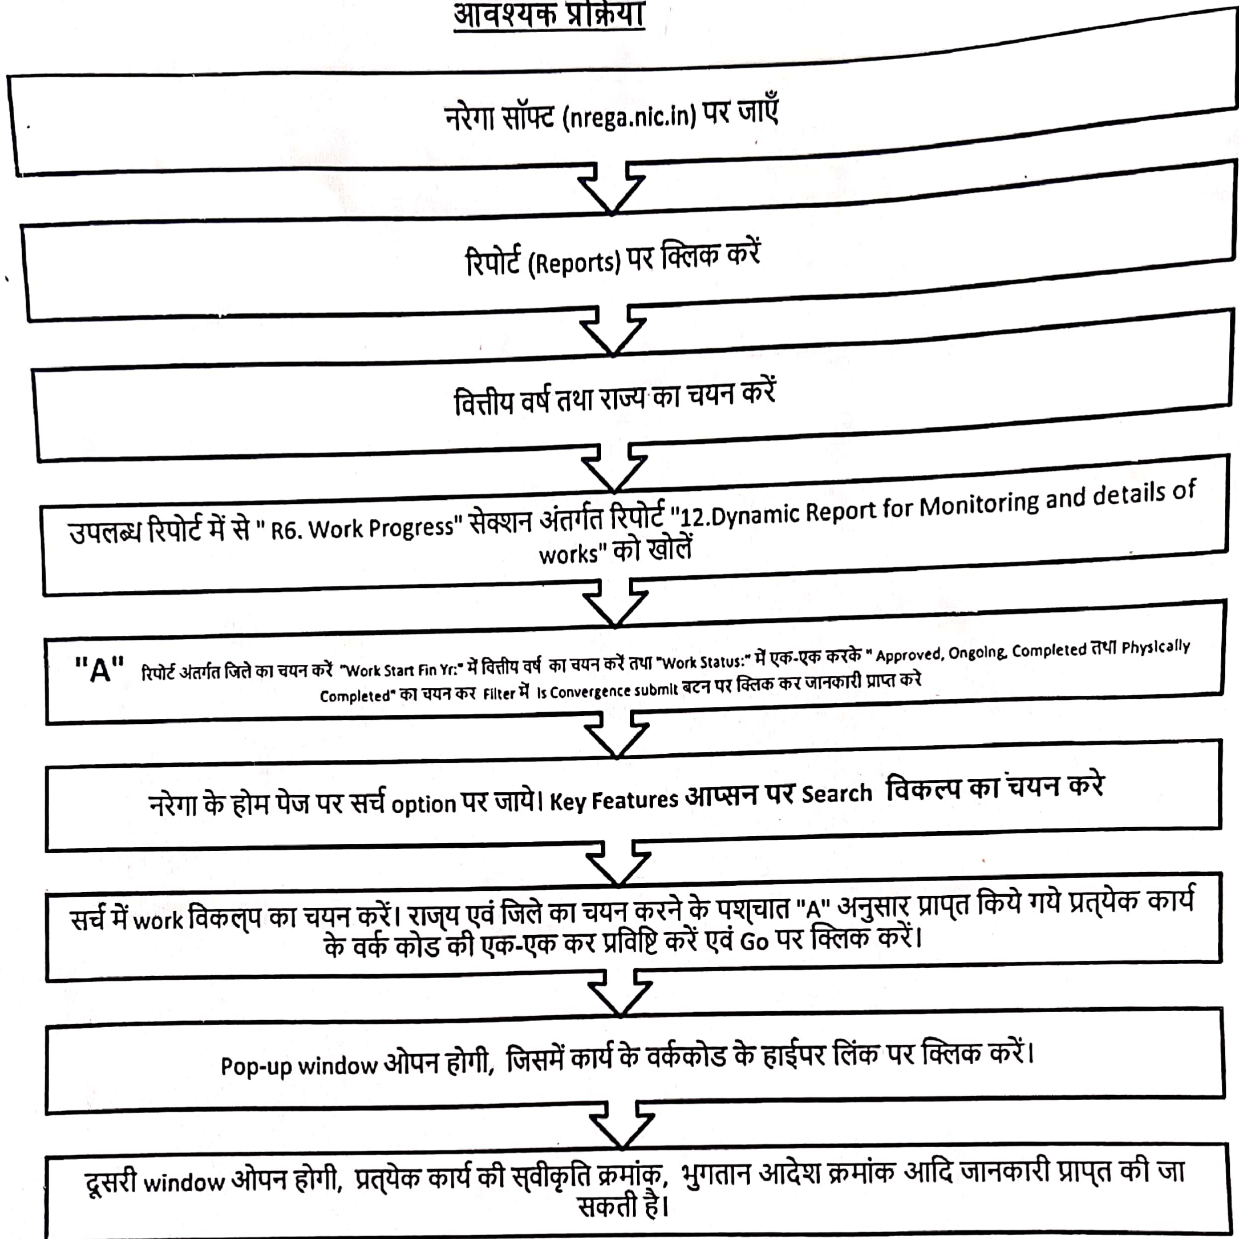 आवश्यक प्रक्रिया
नरेगा सॉफ्ट (nrega.nic.in) पर जाएँ
रिपोर्ट (Reports) पर क्लिक करें
वित्तीय वर्ष तथा राज्य का चयन करें
उपलब्ध रिपोर्ट में से " R6. Work Progress" सेक्शन अंतर्गत रिपोर्ट "12.Dynamic Report for Monitoring and details of
works" को खोलें
"A" रिपोर्ट अंतर्गत जिले का चयन करें "Work Start Fin Yr:" में वित्तीय वर्ष का चयन करें तथा "Work Status:" में एक-एक करके " Approved, Ongoing, Completed तथा Physically
Completed" का चयन कर Filter में Is Convergence submit बटन पर क्लिक कर जानकारी प्राप्त करे
नरेगा के होम पेज पर सर्च option पर जाये। Key Features आप्सन पर Search विकल्प का चयन करे
सर्च में work विकल्प का चयन करें। राज्य एवं जिले का चयन करने के पश्चात "A" अनुसार प्राप्त किये गये प्रत्येक कार्य
के वर्क कोड की एक-एक कर प्रविष्टि करें एवं Go पर क्लिक करें।
Pop-up window ओपन होगी, जिसमें कार्य के वर्ककोड के हाईपर लिंक पर क्लिक करें।
दूसरी window ओपन होगी, प्रत्येक कार्य की स्वीकृति क्रमांक, भुगतान आदेश क्रमांक आदि जानकारी प्राप्त की जा
सकती है।